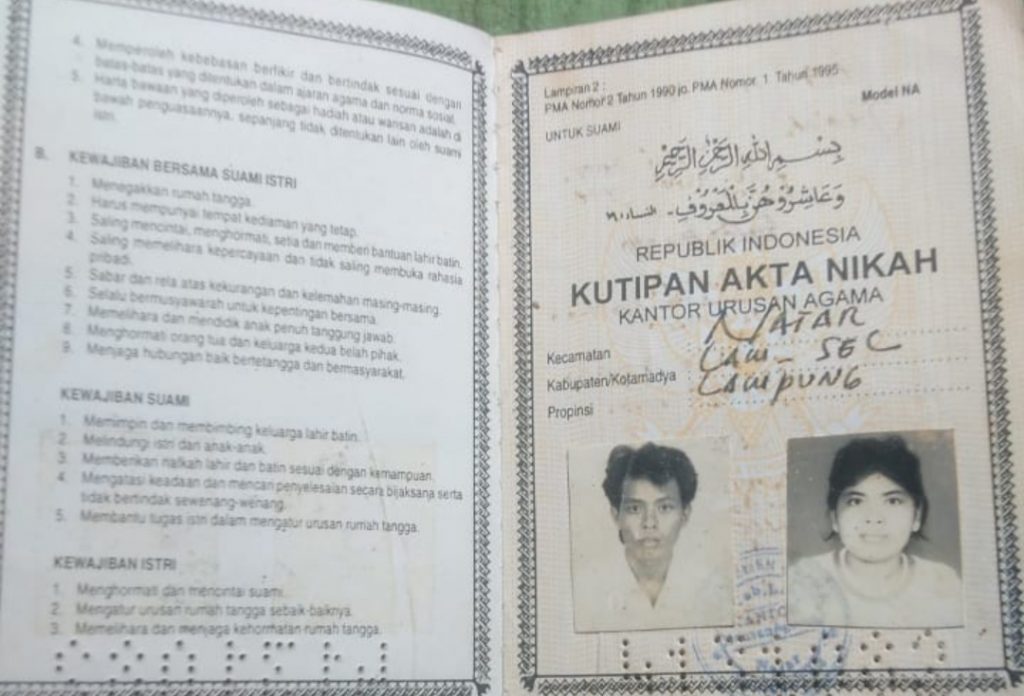 4. Memperoleh kebebasan berfikir dan bertindak sesuai dengan
batas-batas yang ditentukan dalam ajaran agama dan norma sosial.
5. Harta bawaan yang diperoleh sebagai hadiah atau warisan adalah di
bawah penguasaannya, sepanjang tidak ditentukan lain oleh suami
istri.
B. KEWAJIBAN BERSAMA SUAMI ISTRI
1. Menegakkan rumah tangga.
2. Harus mempunyai tempat kediaman yang tetap.
3. Saling mencintai, menghormati, setia dan memberi bantuan lahir batin.
4. Saling memelihara kepercayaan dan tidak saling membuka rahasia
pribadi.
5. Sabar dan rela atas kekurangan dan kelemahan masing-masing.
6. Selalu bermusyawarah untuk kepentingan bersama.
7. Memelihara dan mendidik anak penuh tanggung jawab.
8. Menghormati orang tua dan keluarga kedua belah pihak.
9. Menjaga hubungan baik bertetangga dan bermasyarakat.
KEWAJIBAN SUAMI
1. Memimpin dan membimbing keluarga lahir batin.
2. Melindungi istri dan anak-anak.
3. Memberikan nafkah lahir dan batin sesuai dengan kemampuan.
4. Mengatasi keadaan dan mencari penyelesaian secara bijaksana serta
tidak bertindak sewenang-wenang.
5. Membantu tugas istri dalam mengatur urusan rumah tangga.
KEWAJIBAN ISTRI
1. Menghormati dan mencintai suami.
2. Mengatur urusan rumah tangga sebaik-baiknya.
3. Memelihara dan menjaga kehormatan rumah tangga.
Lampiran 2 :
PMA Nomor 2 Tahun 1990 jo. PMA Nomor 1 Tahun 1995
Model NA
UNTUK SUAMI
بِسْمِ اللهِ الرَّحْمٰنِ الرَّحِيْمِ
وَعَاشِرُوْهُنَّ بِالْمَعْرُوْفِ - النساء ١٩
REPUBLIK INDONESIA
KUTIPAN AKTA NIKAH
KANTOR URUSAN AGAMA
Kecamatan : NATAR
Kabupaten/Kotamadya : LAM - SEL
Propinsi LAMPUNG